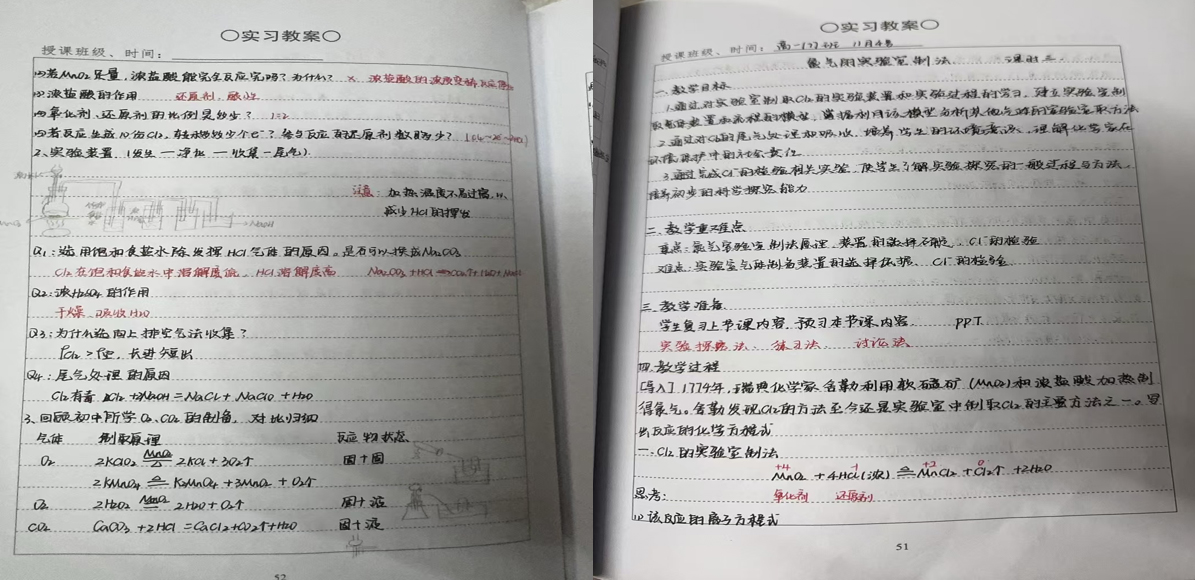 ○实习教案○
授课班级、时间：
(2)若MnO2足量，浓盐酸能完全反应完吗？为什么？ × 浓盐酸的浓度变稀
(3)浓盐酸的作用 还原剂、酸性
(4)氧化剂、还原剂的比例是多少？ 1:2
2、实验装置（发生—净化—收集—尾气）.
注意：加热温度不易过高，
减少HCl的挥发
NaOH
Q1：选用饱和食盐水除发挥HCl气体的原因。是否可以换成Na2CO3
Cl2在饱和食盐水中溶解度低，HCl溶解度高
Q2：浓H2SO4的作用
干燥、吸收H2O
Q3：为什么选向上排空气法收集？
长进短出
Q4：尾气处理的原因
Cl2有毒 Cl2+2NaOH=NaCl+NaClO+H2O
3、回顾初中所学O2、CO2的制备，对比归纳
气体 制取原理 反应物状态
O2 2KClO3 MnO2 △ 2KCl+3O2↑ 固+固
2KMnO4 △ K2MnO4+MnO2+O2↑
O2 2H2O2 MnO2 2H2O+O2↑ 固+液
CO2 CaCO3+2HCl=CaCl2+CO2↑+H2O 固+液
52
○实习教案○
授课班级、时间：高一177班 11月4号
氯气的实验室制法 课时二
一、教学目标
1.通过对实验室制取Cl2的实验装置和实验过程的学习，建立实验室制
取气体装置和流程的模型，
2.通过对Cl2的尾气处理和吸收，培养学生的环境意识，理解化学在
环境保护中的社会责任
3.通过完成Cl-的检验相关实验，使学生了解实验探究的一般过程与方法，
培养初步的科学探究能力
二、教学重难点
重点：氯气实验室制法原理、装置的选择 Cl-的检验
难点：实验室气体制备装置的选择依据、Cl-的检验
三、教学准备
学生复习上节课内容，预习本节课内容 PPT
实验探究法、练习法、讨论法
四、教学过程
[导入] 1774年，瑞典化学家舍勒利用软锰矿（MnO2）和浓盐酸加热制
得氯气。舍勒发现Cl2的方法至今还是实验室中制取Cl2的主要方法之一。写
出反应的化学方程式
一、Cl2的实验室制法
+4 -1 +2 0
MnO2+4HCl(浓) △ MnCl2+Cl2↑+2H2O
思考： 氧化剂 还原剂
(1)该反应的离子方程式
51